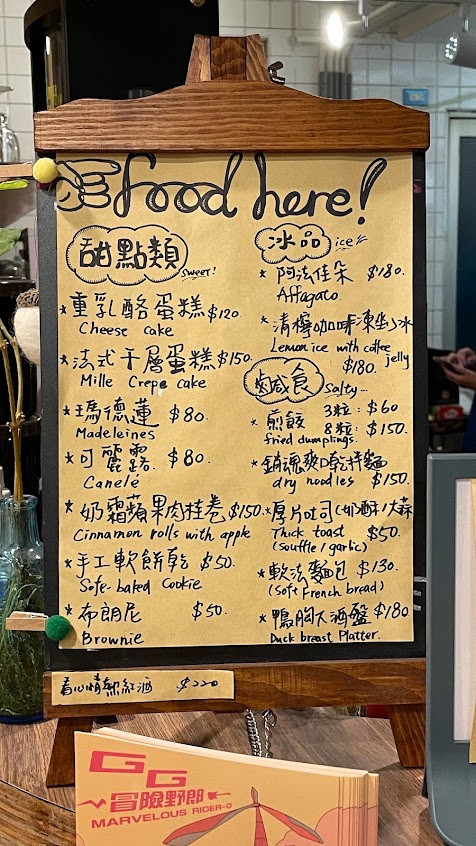 food here!
甜點類 sweet!
* 重乳酪蛋糕 $120.
Cheese cake
* 法式千層蛋糕 $150.
Mille Crepe cake
* 瑪德蓮 $80.
Madeleines
* 可麗露. $80.
Canelé
* 奶霜蘋果肉桂卷 $150.
Cinnamon rolls with apple
* 手工軟餅乾 $50.
Softe-baked Cookie
* 布朗尼 $50.
Brownie
冰品 ice
* 阿法佳朵 $180.
Affagato
* 清檸咖啡凍坐冰
Lemon ice with coffee jelly
$180.
鹹食 Salty...
* 煎餃 3粒: $60
8粒: $150.
fried dumplings.
* 銷魂爽口乾拌麵
dry noodles $150.
* 厚片吐司(奶酥/大蒜
Thick toast $50.
(souffle / garlic)
* 軟法麵包 $130.
(Soft french bread)
* 鴨胸大酒盤 $180
Duck breast Platter.
看心情熱紅酒 $220
GG
冒險野郎
MARVELOUS RIDER-G